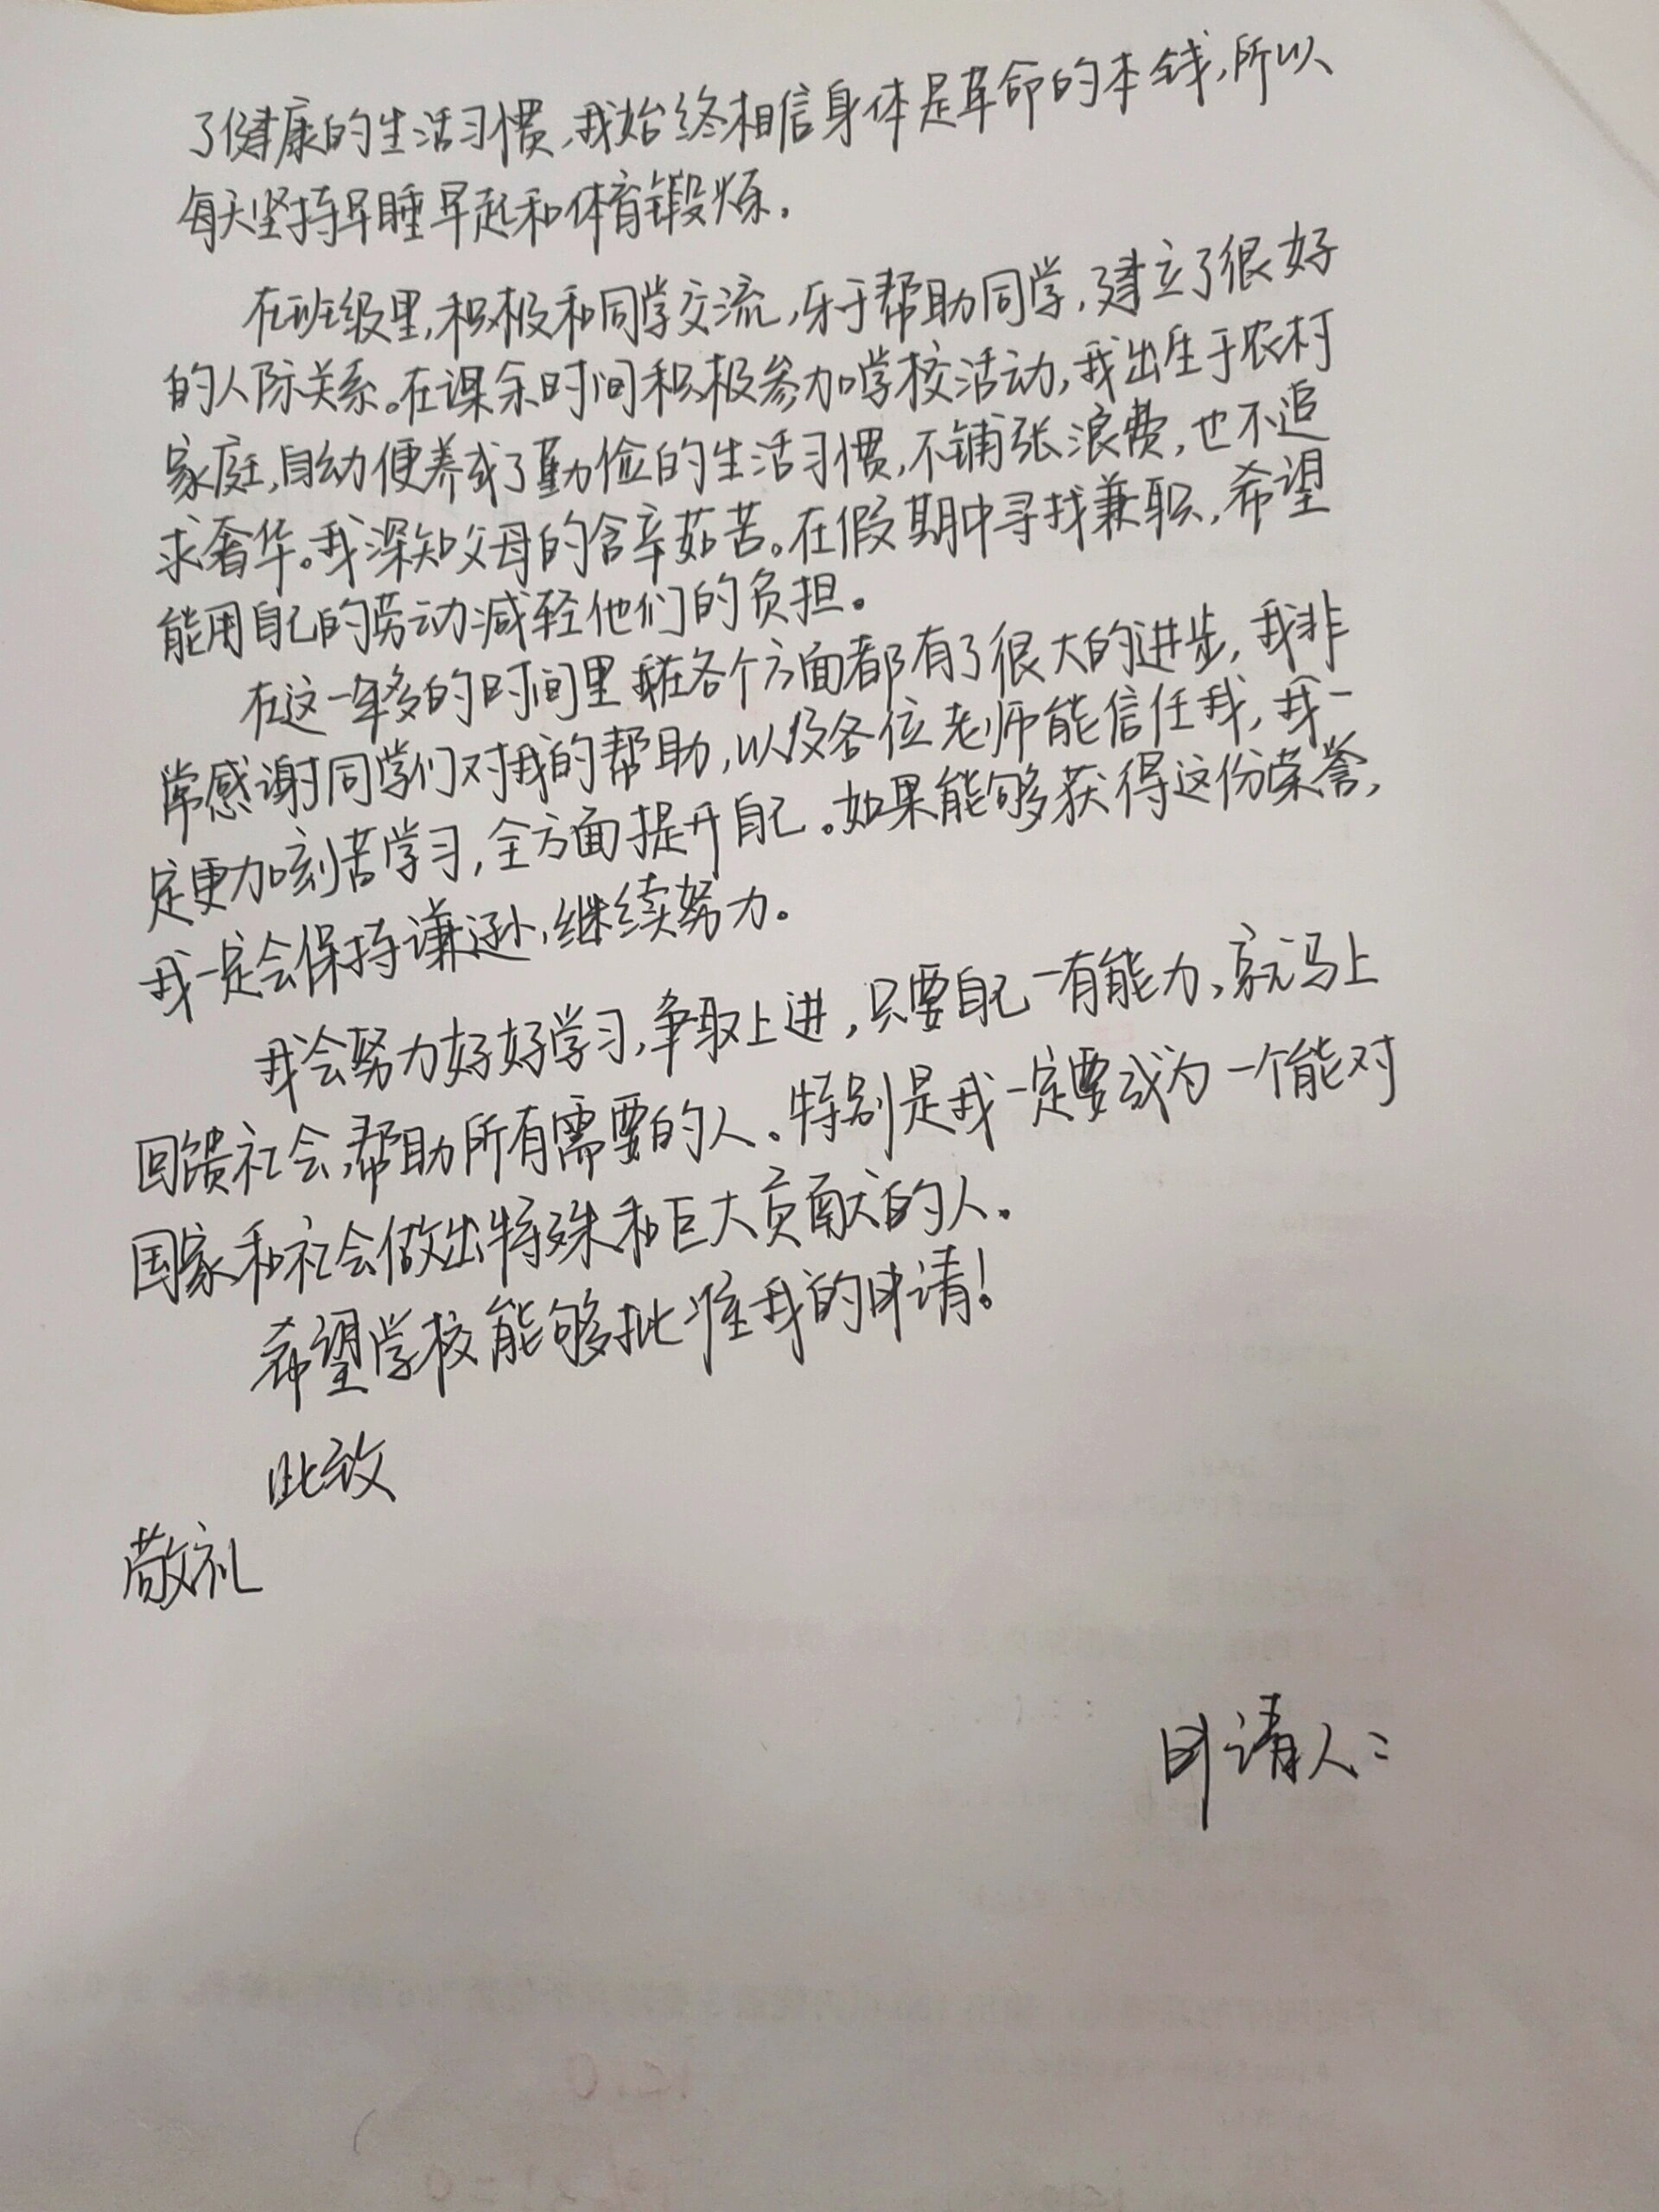 了健康的生活习惯,我始终相信身体是革命的本钱,所以
每天坚持早睡早起和体育锻炼。
在班级里,积极和同学交流,乐于帮助同学,建立了很好
的人际关系。在课余时间积极参加学校活动,我出生于农村
家庭,自幼便养成了勤俭的生活习惯,不铺张浪费,也不追
求奢华。我深知父母的含辛茹苦。在假期中寻找兼职,希望
能用自己的劳动减轻他们的负担。
在这一年多的时间里我在各个方面都有了很大的进步,我非
常感谢同学们对我的帮助,以及各位老师能信任我,我一
定更加刻苦学习,全方面提升自己。如果能够获得这份荣誉,
我一定会保持谦逊,继续努力。
我会努力好好学习,争取上进,只要自己一有能力,就马上
回馈社会,帮助所有需要的人。特别是我一定要成为一个能对
国家和社会做出特殊和巨大贡献的人。
希望学校能够批准我的申请!
此致
敬礼
申请人: